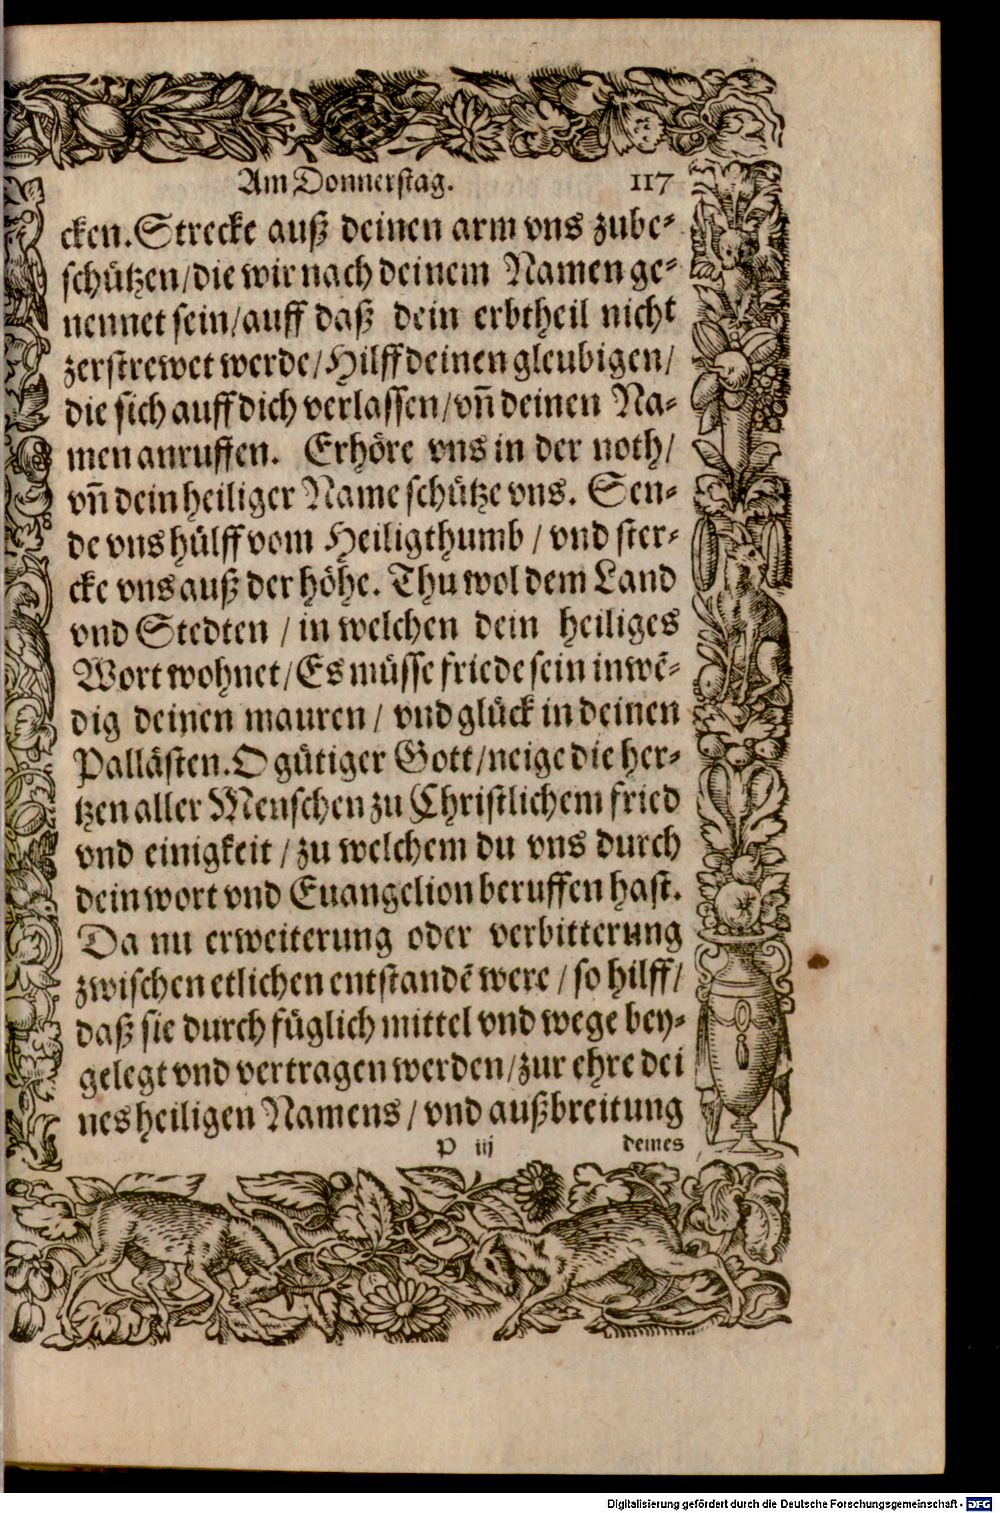 Am Donnerstag. 117
cken. Strecke auß deinen arm vns zube-
schützen/die wir nach deinem Namen ge-
nennet sein/auff daß dein erbtheil nicht
zerstrewet werde/Hilff deinen gleubigen/
die sich auff dich verlassen/vn̄ deinen Na-
men anruffen. Erhöre vns in der noth/
vn̄ dein heiliger Name schütze vns. Sen-
de vns hülff vom Heiligthumb / vnd ster-
cke vns auß der höhe. Thu wol dem Land
vnd Stedten / in welchen dein heiliges
Wort wohnet/Es müsse friede sein inwē-
dig deinen mauren / vnd glück in deinen
Pallästen. O gütiger Gott/neige die her-
tzen aller Menschen zu Christlichem fried
vnd einigkeit / zu welchem du vns durch
dein wort vnd Euangelion beruffen hast.
Da nu erweiterung oder verbitterung
zwischen etlichen entstandē were / so hilff/
daß sie durch füglich mittel vnd wege bey-
gelegt vnd vertragen werden/zur ehre dei
nes heiligen Namens / vnd außbreitung
P iij deines
Digitalisierung gefördert durch die Deutsche Forschungsgemeinschaft - DFG